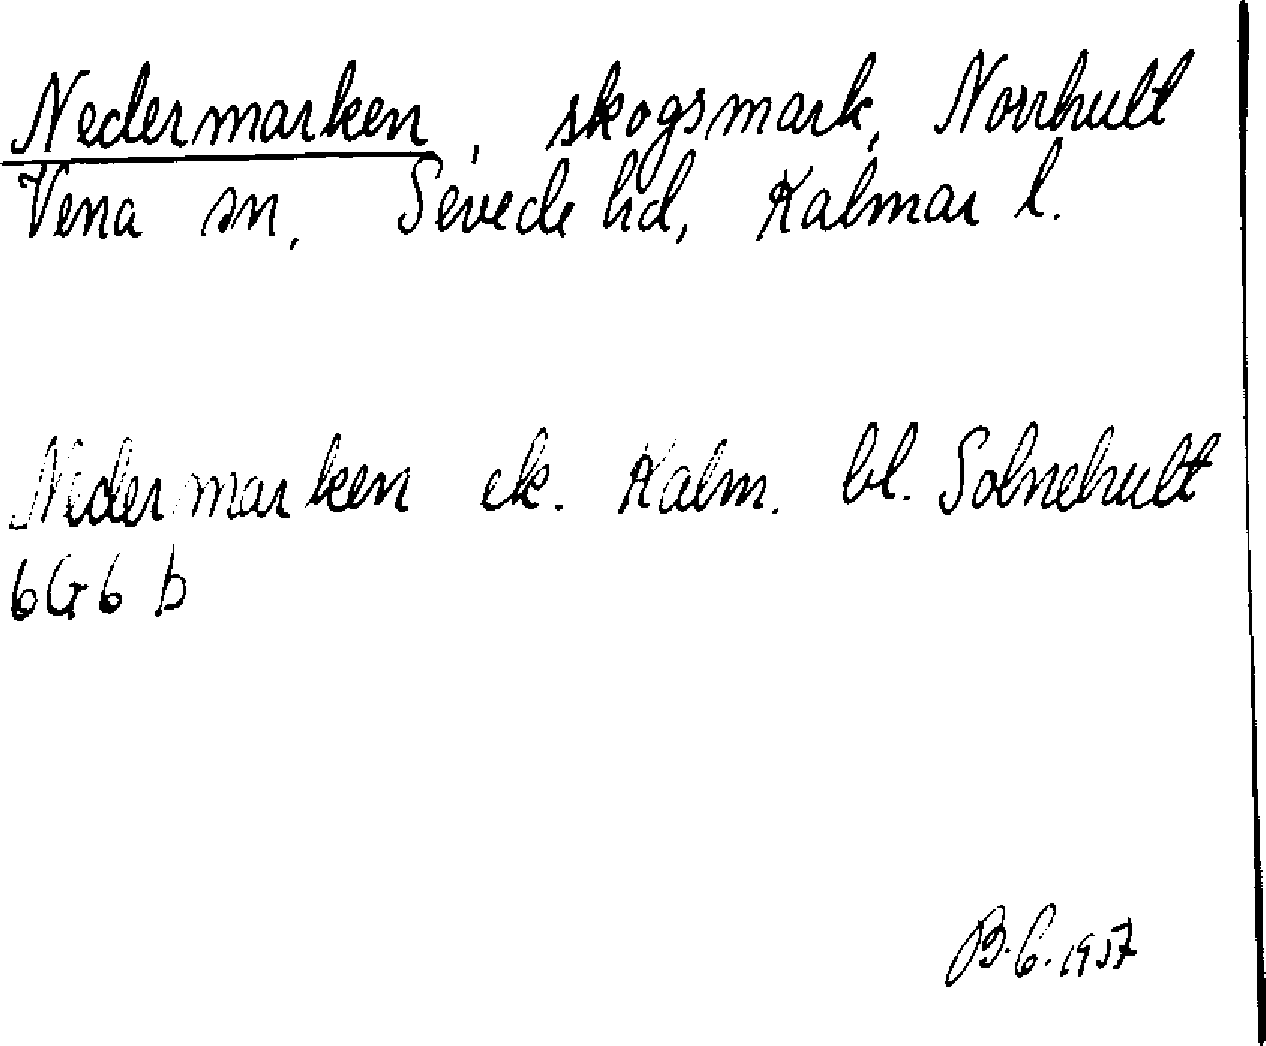 Nedermarken, skogsmark, Norrhult
Vena sn, Sevede hd, Kalmar l.
Nedermarken ek. Kalm. bl. Solnehult
6G6 b
B.G. 1957